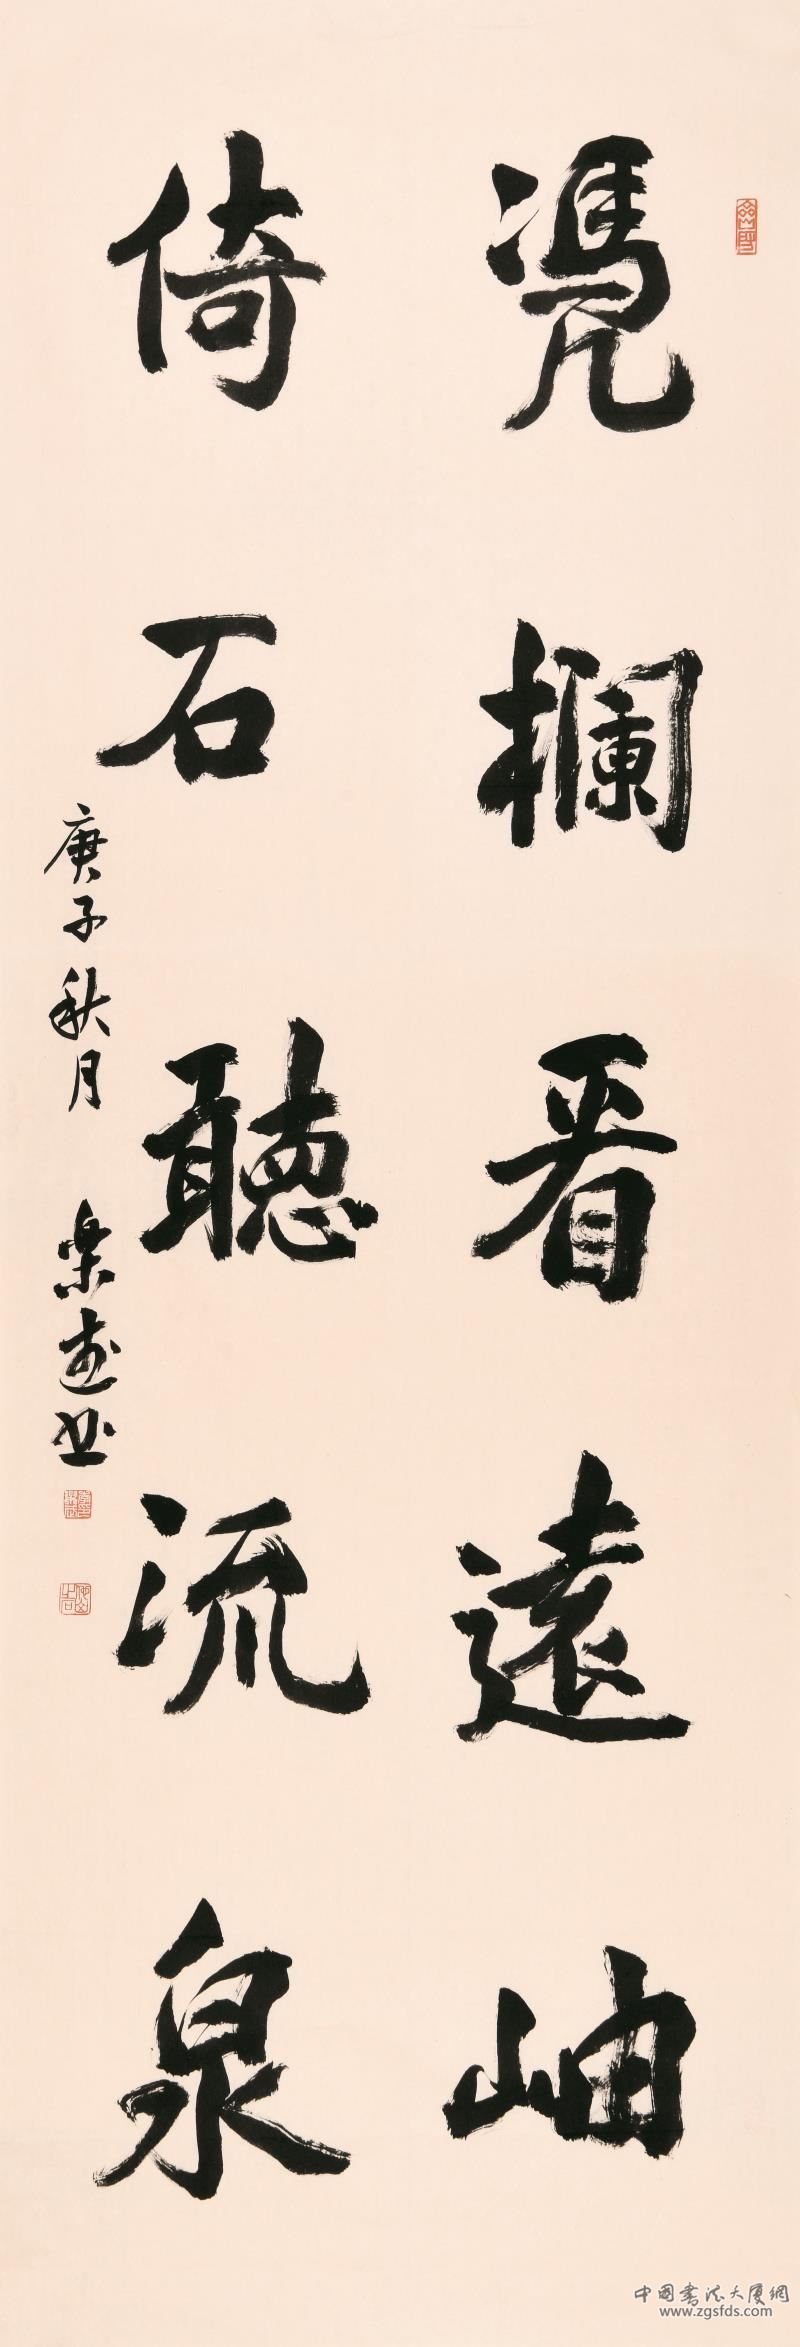 凭欄看遠岫
倚石聽流泉
庚子秋月 樂志書
中國書法大厦網
www.zgsfds.com